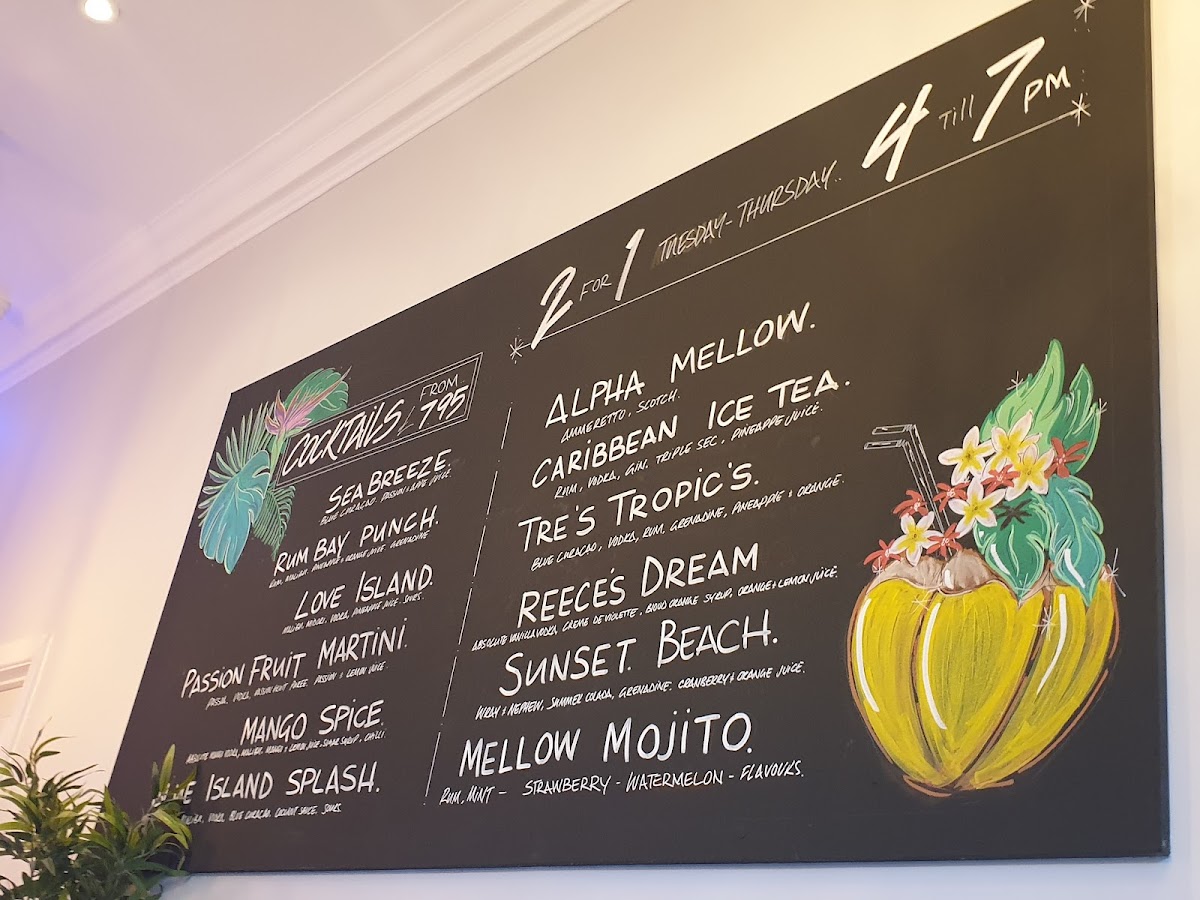 2 FOR 1 TUESDAY - THURSDAY.. 4 Till 7 PM
COCKTAILS / FROM 795
SEA BREEZE.
BLUE CURACAO, PASSION + LIME JUICE.
RUM BAY PUNCH.
RUM, MALIBU, PINEAPPLE + ORANGE JUICE. GRENADINE
LOVE ISLAND.
MALIBU, MIDORI, VODKA, PINEAPPLE JUICE. SOURS.
PASSION FRUIT MARTINI.
PASSOA, VODKA, PASSION FRUIT PUREE, PASSION + LEMON JUICE
MANGO SPICE.
ABSOLUTE MANGO VODKA, MALIBU, MANGO + LEMON JUICE, SUGAR SYRUP, CHILLI
ISLAND SPLASH.
VODKA, BLUE CURACAO, SOURS.
ALPHA MELLOW.
AMMERETTO, SCOTCH.
CARIBBEAN ICE TEA.
RUM, VODKA, GIN, TRIPLE SEC, PINEAPPE JUICE.
TRE'S TROPIC'S.
BLUE CURACAO, VODKA, RUM, GRENADINE, PINEAPPLE + ORANGE.
REECE'S DREAM
ABSOLUTE VANILLA VODKA, CREME DE VIOLETTE, BLOOD ORANGE SYRUP, ORANGE + LEMON JUICE.
SUNSET. BEACH.
WRAY + NEPHEW, SUMMER COLADA, GRENADINE. CRANBERRY + ORANGE JUICE.
MELLOW MOJITO.
RUM, MINT - STRAWBERRY - WATERMELON - FLAVOURS.